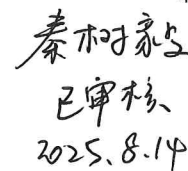 秦树毅
已审核
2025.8.14